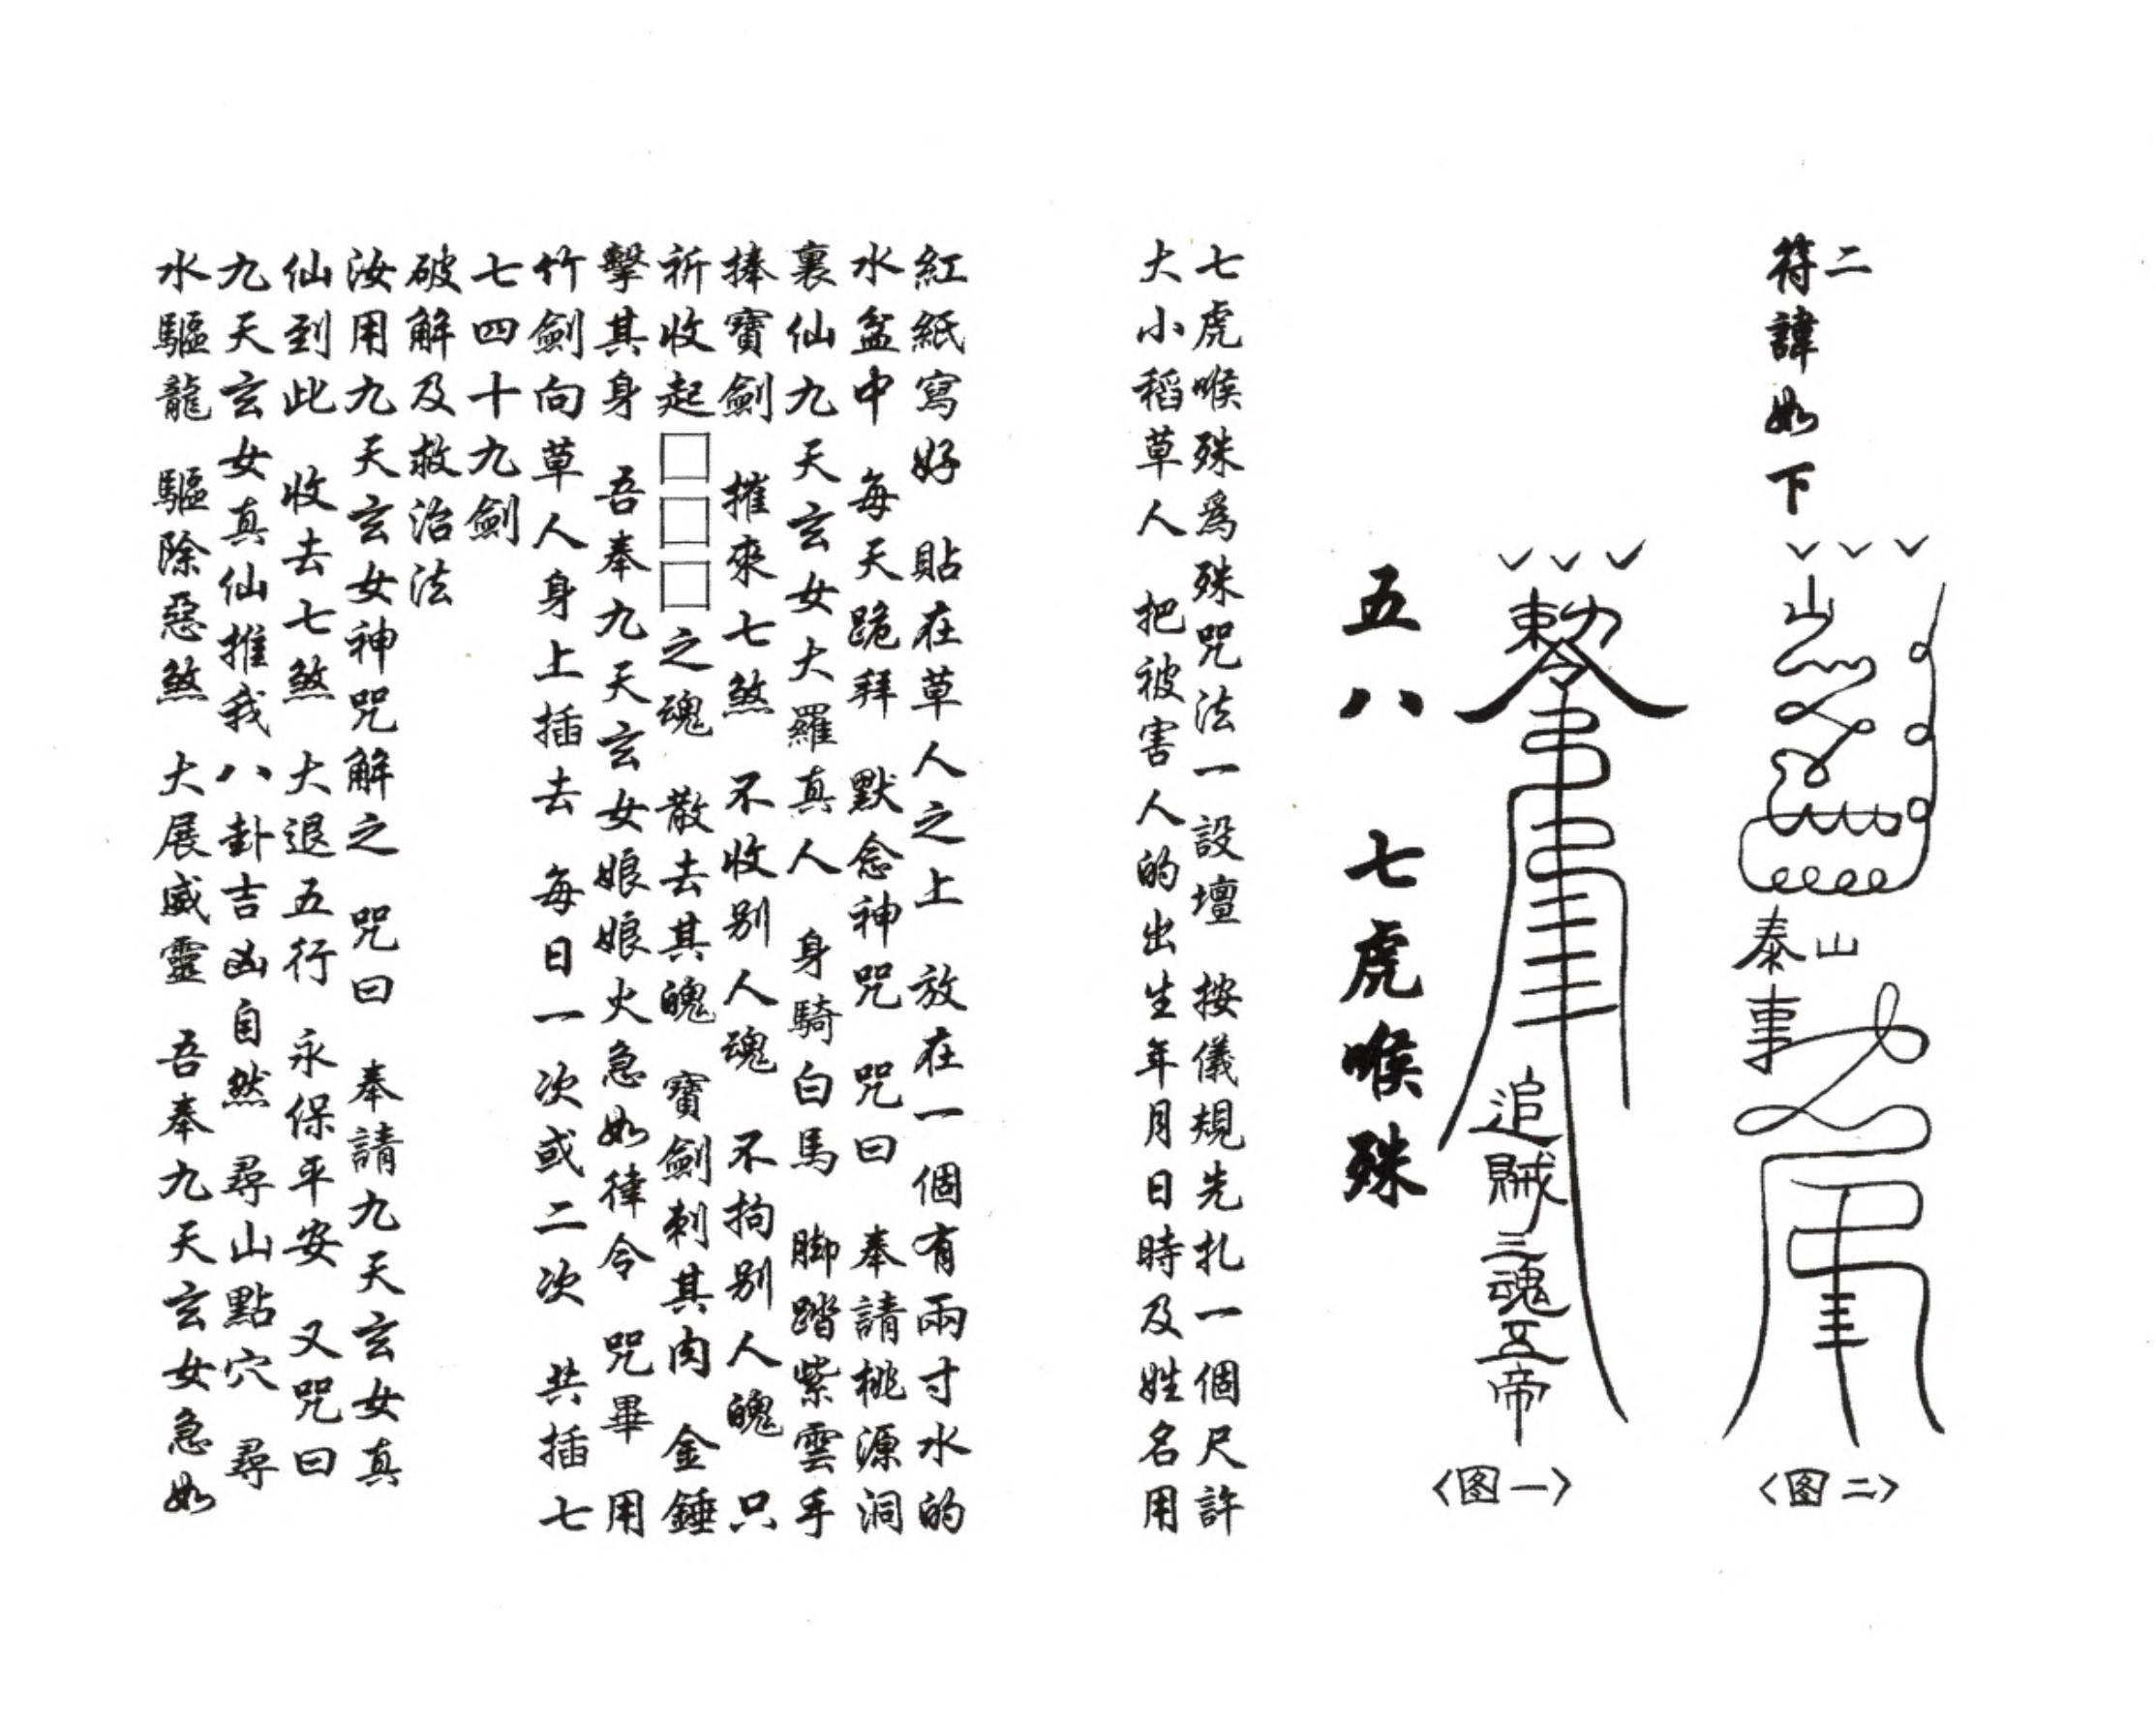 二
符諱如下
山
泰山
事
〈图二〉
敕令
追
賊
三魂
五帝
〈图一〉
五八 七虎喉殃
七虎喉殃爲殃咒法一設壇 按儀規先扎一個尺許
大小稻草人 把被害人的出生年月日時及姓名用
紅紙寫好 貼在草人之上 放在一個有兩寸水的
水盆中 每天跪拜 默念神咒 咒曰 奉請桃源洞
裏仙九天玄女大羅真人 身騎白馬 脚踏紫雲手
捧寶劍 摧來七煞 不收别人魂 不拘别人魄 只
祈收起□□□之魂 散去其魄 寶劍刺其肉 金錘
擊其身 吾奉九天玄女娘娘火急如律令 咒畢 用
竹劍向草人身上插去 每日一次或二次 共插七
七四十九劍
破解及救治法
汝用九天玄女神咒解之 咒曰 奉請九天玄女真
仙到此 收去七煞 大退五行 永保平安 又咒曰
九天玄女真仙推我八卦吉凶自然 尋山點穴 尋
水驅龍 驅除惡煞 大展威靈 吾奉九天玄女急如